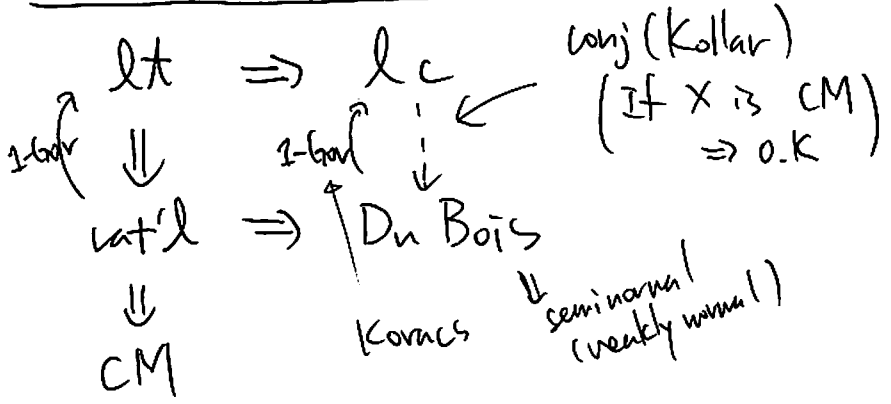 lt ⇒ lc
conj (Kollar)
(If X is CM
⇒ O.K)
1-Gor ⇓ 1-Gor
rat'l ⇒ Du Bois
⇓ ⇓
Kovacs
seminormal
(weakly normal)
CM